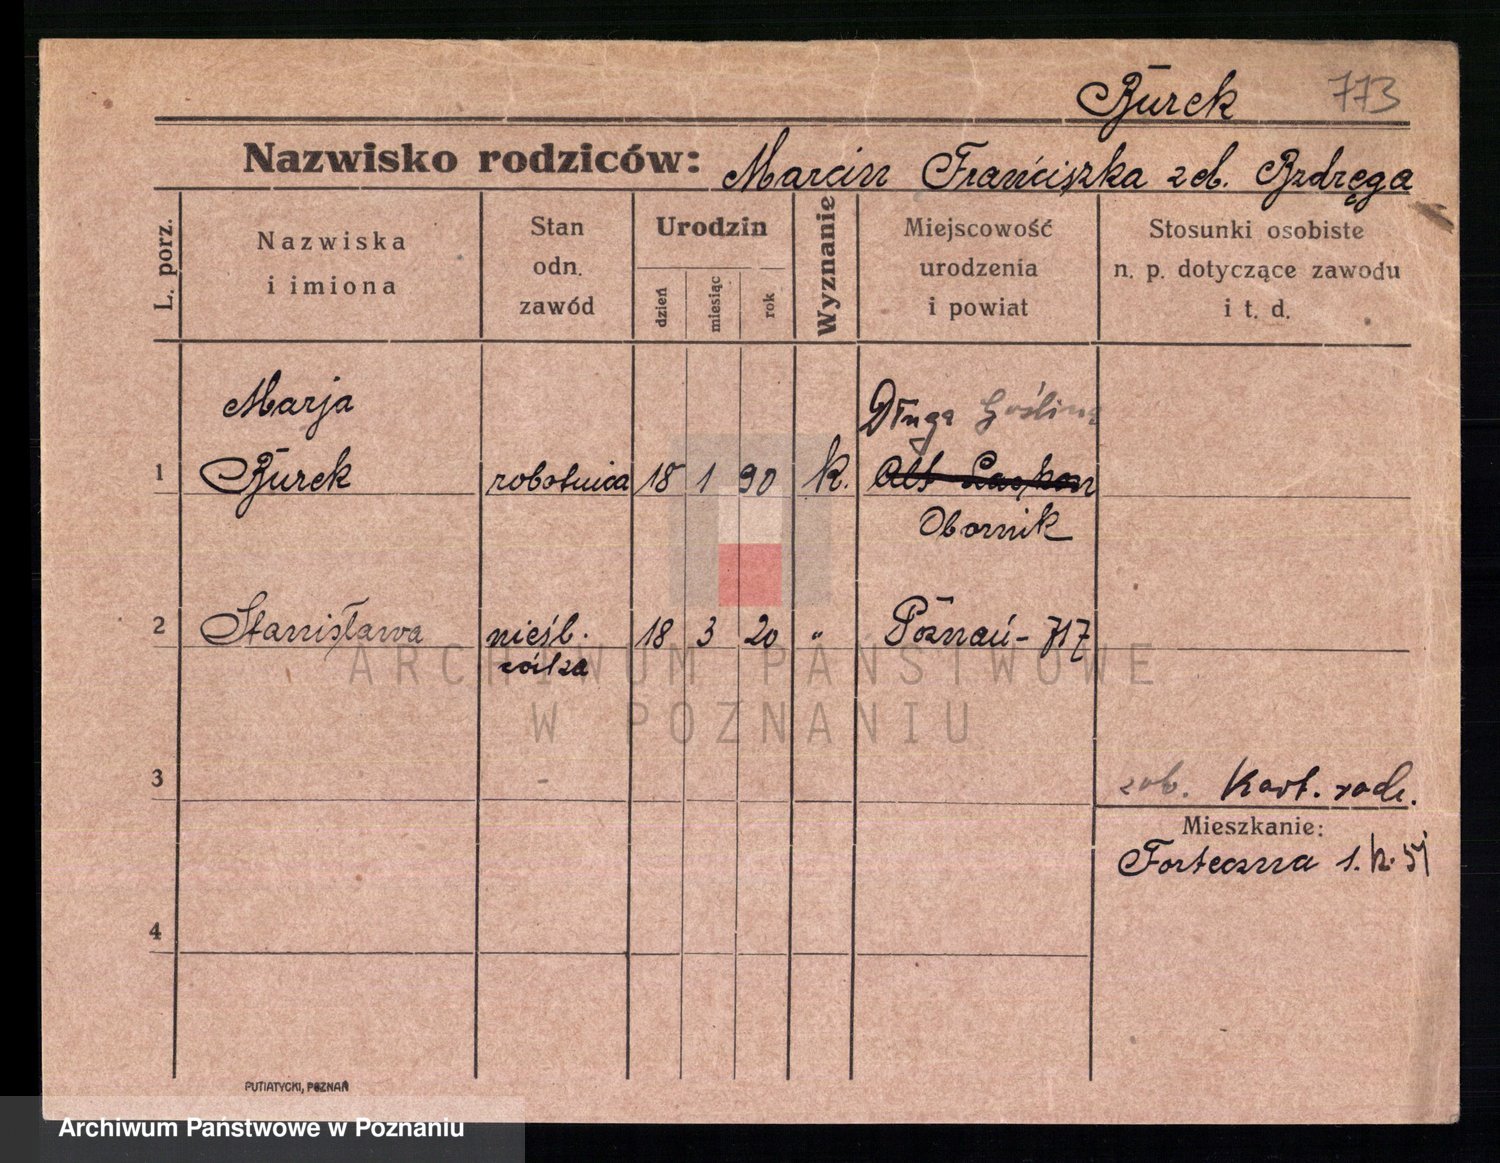 Burek 773
Nazwisko rodziców: Marcin Franciszka zob. Bzdręga
L. porz.
Nazwiska
i imiona
Stan
odn.
zawód
Urodzin
dzień
miesiąc
rok
Wyznanie
Miejscowość
urodzenia
i powiat
Stosunki osobiste
n. p. dotyczące zawodu
i t. d.
Marja Długa Goślina
1 Burek robotnica 18 1 90 k. Alt
Obornik
2 Stanisława nieśl. 18 3 20 " Poznań - 717
córka
ARCHIWUM PAŃSTWOWE
W POZNANIU
3 zob. Kart. rodz.
Mieszkanie:
Forteczna 1.
4
PUTIATYCKI, POZNAŃ
Archiwum Państwowe w Poznaniu